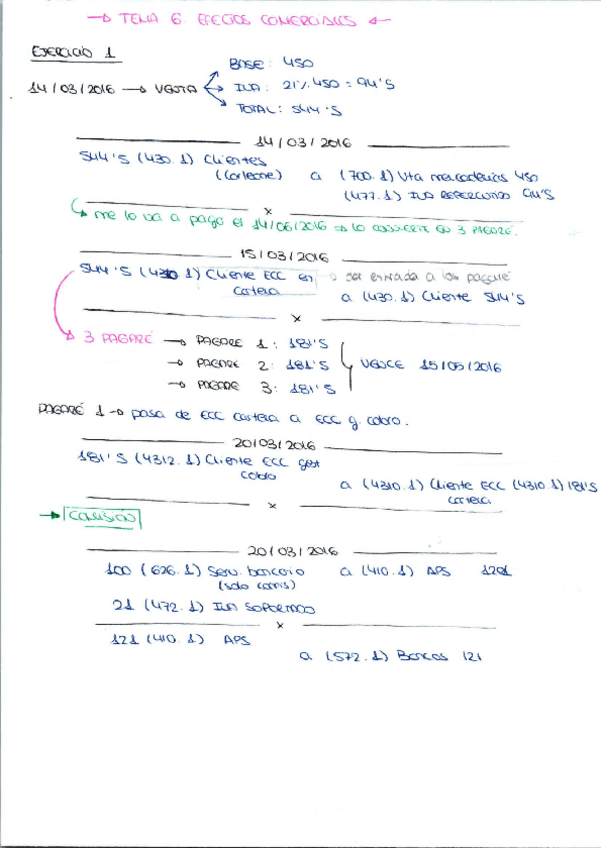 → TEMA 6. EFECTOS COMERCIALES ←
EJERCICIO 1
BASE: 450
14/03/2016 → VENTA IVA: 21% 450 = 94'5
TOTAL: 544'5
14/03/2016
544'5 (430.1) Clientes
(Corleone) a (700.1) Vta mercaderías 450
(477.1) IVA REPERCUTIDO 94'5
x
me lo va a pago el 14/06/2016 → lo convierte en 3 PAGARÉ.
15/03/2016
544'5 (4310.1) Cliente ECC en
cartera
a (430.1) Cliente 544'5
x
3 PAGARÉ → PAGARE 1: 181'5
→ PAGARE 2: 181'5 VENCE 15/05/2016
→ PAGARE 3: 181'5
PAGARÉ 1 → pasa de ECC cartera a ECC g. cobro.
20/03/2016
181'5 (4312.1) Cliente ECC gest
cobro
a (4310.1) Cliente ECC (4310.1) 181'5
cartera
x
→ COMISIÓN
20/03/2016
100 (626.1) Serv. bancario a (410.1) APS 121
(solo comis)
21 (472.1) IVA SOPORTADO
x
121 (410.1) APS
a (572.1) Bancos 121